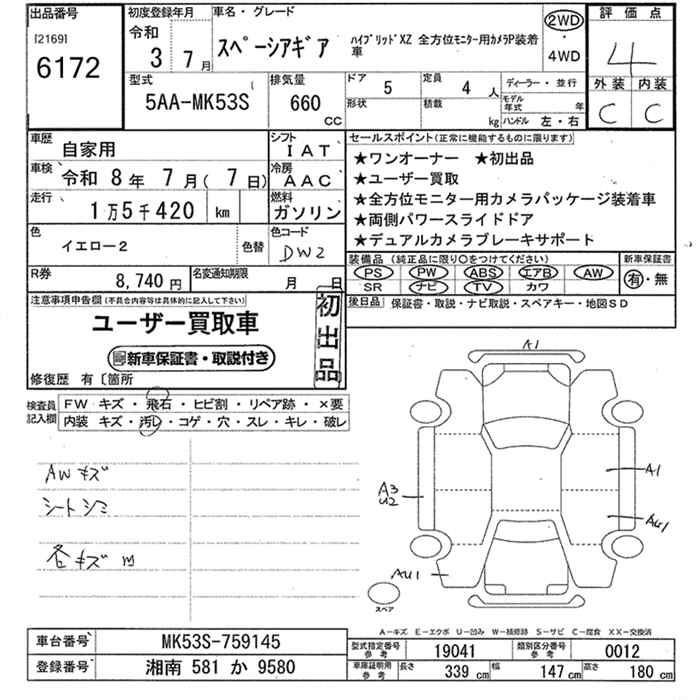 出品番号
[2169]
6172
初度登録年月
令和
3 7月
車名・グレード
スペーシアギア ハイブリッドXZ 全方位モニター用カメラP装着車
2WD
・
4WD
評価点
4
外装 内装
C C
型式
5AA-MK53S
排気量
660
CC
ドア 5
形状
定員 4人
積載 kg
ディーラー・並行
モデル年式 年
ハンドル 左・右
車歴 自家用
シフト IAT
車検 令和 8年 7月( 7日)
冷房 AAC
走行 1万5千420 km
燃料 ガソリン
色 イエロー2 色替
色コード DW2
R券 8,740円
名変通知期限 月 日
セールスポイント(正常に機能するものに限ります)
★ワンオーナー ★初出品
★ユーザー買取
★全方位モニター用カメラパッケージ装着車
★両側パワースライドドア
★デュアルカメラブレーキサポート
装備品 (純正品に限り○をつけてください)
PS PW ABS エアB AW
SR ナビ TV カワ
新車保証書
有・無
後日品 保証書・取説・ナビ取説・スペアキー・地図SD
注意事項申告欄(不具合内容等は具体的に記入して下さい)
ユーザー買取車
新車保証書・取説付き
初出品
修復歴 有〔箇所
検査員記入欄
FW キズ・飛石・ヒビ割・リペア跡・×要
内装 キズ・汚レ・コゲ・穴・スレ・キレ・破レ
AWキズ
シートシミ
各キズm
A1
A3
U2
A1
AU1
AU1
スペア
A-キズ E-エクボ U-凹み W-補修跡 S-サビ C-腐食 XX-交換済
車台番号 MK53S-759145
登録番号 湘南 581 か 9580
型式指定番号参考 19041
類別区分番号参考 0012
車庫証明用参考 長さ 339cm 幅 147cm 高さ 180cm